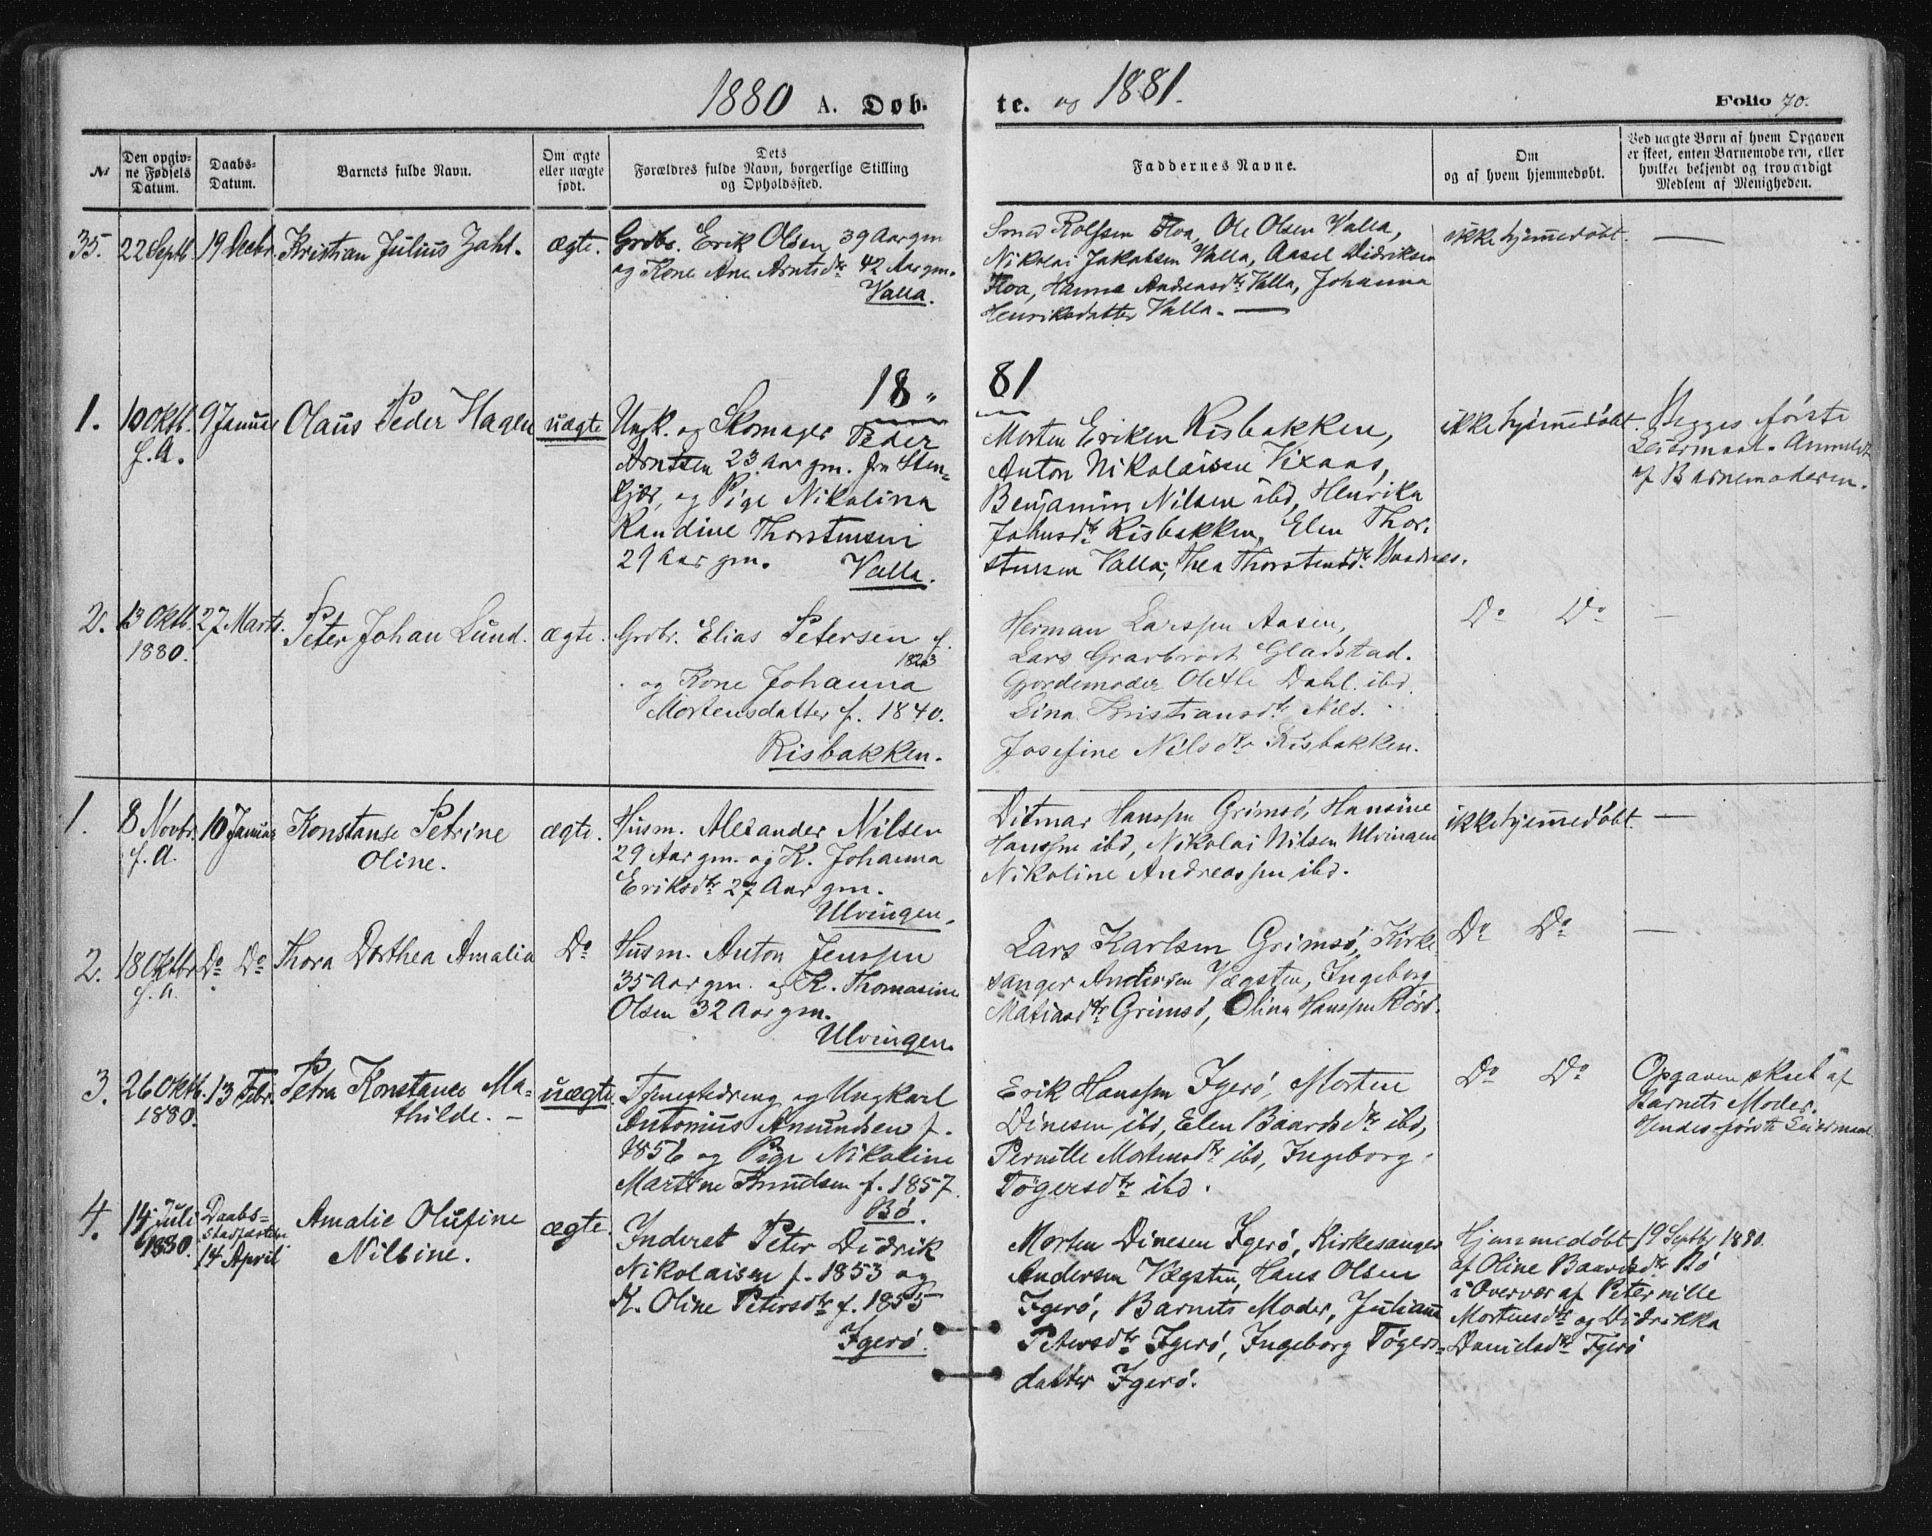 1880 A. Døb-
te. og 1881.
Folio 70.
№
Den opgiv-
ne Fødsels
Datum.
Daabs-
Datum.
Barnets fulde Navn.
Om ægte
eller uægte
født.
Dets
Forældres fulde Navn, borgerlige Stilling
og Opholdssted.
Faddernes Navne.
Om
og af hvem hjemmedøbt.
Ved uægte Børn af hvem Opgaven
er skeet, enten Barnemoderen, eller
hvilket bekjendt og troværdigt
Medlem af Menigheden.
35.
22 Septb.
19 Decbr.
Kristian Julius Zahl.
ægte.
Grdbr. Erik Olsen 39 Aar gm
og Kone Ane Arntsdtr 42 Aar gm.
Valla.
Rolfsen Floa, Ole Olsen Valla,
Nikolai Jakobsen Valla, Aasel Didriksen
Floa, Hanna Andreasdtr Valla, Johanna
Henriksdatter Valla.
ikke hjemmedøbt.
—
18 81
1.
10 Oktb.
f. A.
9 Januar
Olaus Peder Hagen
uægte
Ungk. og Skomager Peder
Arntsen 23 Aar gm. fra Sten-
kjær, og Pige Nikolina
Randine Thorstensen
29 Aar gm.
Valla.
Morten Eriksen Risbakken,
Anton Nikolaisen Vixaas,
Benjamin Nilsen ibd, Henrika
Johnsdtr Risbakken, Elen Thor-
stensen Valla, Thea Thorstensdtr
ikke hjemmedøbt.
Begges første
Leiermaal. Anmeldt
af Barnemoderen.
2.
13 Oktb.
1880.
27 Marts.
Peter Johan Lund.
ægte.
Grdbr. Elias Petersen f.
1823
og Kone Johanna
Mortensdatter f. 1840.
Risbakken.
Herman Larssen Aasen,
Lars Gladstad.
Gjordemoder Olette Dahl. ibd.
Lina Kristiansdtr
Josefine Nilsdtr Risbakken.
Do Do
—
1.
8 Novbr.
f. A.
16 Januar
Konstanse Petrine
Oline.
ægte.
Husm. Alexander Nilsen
29 Aar gm. og K. Johanna
Eriksdtr 27 Aar gm.
Ulvingen.
Ditmar Hanssen Grimsø, Hansine
Hanssen ibd, Nikolai Nilsen Ulvingen
Nikoline Andreassen ibd.
ikke hjemmedøbt.
—
2.
18 Oktbr.
f. A.
Do Do
Thora Dorthea Amalia
Do
Husm. Anton Jenssen
35 Aar gm. og K. Thomasine
Olsen 32 Aar gm.
Ulvingen.
Lars Karlsen Grimsø, Kirke
sanger Andersen Vægsten, Ingeborg
Matiasdtr Grimsø, Olina Hanssen Rørø.
Do Do
—
3.
26 Oktb.
1880.
13 Febr.
Petra Konstance Ma-
thilde.
uægte.
Tjenestedreng og Ungkarl
Antonius Amundsen f.
1856 og Pige Nikoline
Martine Knudsen f. 1857.
Bø.
Erik Hanssen Igerø, Morten
Dinesen ibd, Elen Baardsdtr ibd,
Pernille Mortensdtr ibd, Ingeborg
Tøgersdtr ibd.
Do Do
Opgaven skeet af
Barnets Moder.
Hendes første Leiermaal.
4.
14 Juli
1880.
Daabs-
Stadfæstelse
14 April
Amalie Olufine
Nilsine.
ægte.
Inderst Peter Didrik
Nikolaisen f. 1853 og
K. Oline Petersdtr f. 1855
Igerø.
Morten Dinesen Igerø, Kirkesanger
Andersen Vægsten, Hans Olsen
Igerø, Barnets Moder, Juliana
Petersdtr Igerø, Ingeborg Tøgers-
datter Igerø.
Hjemmedøbt 19 Septbr 1880.
af Oline Baardsdtr Bø
i Overvær af Peternille
Mortensdtr og Didrikka
Danielsdtr Igerø